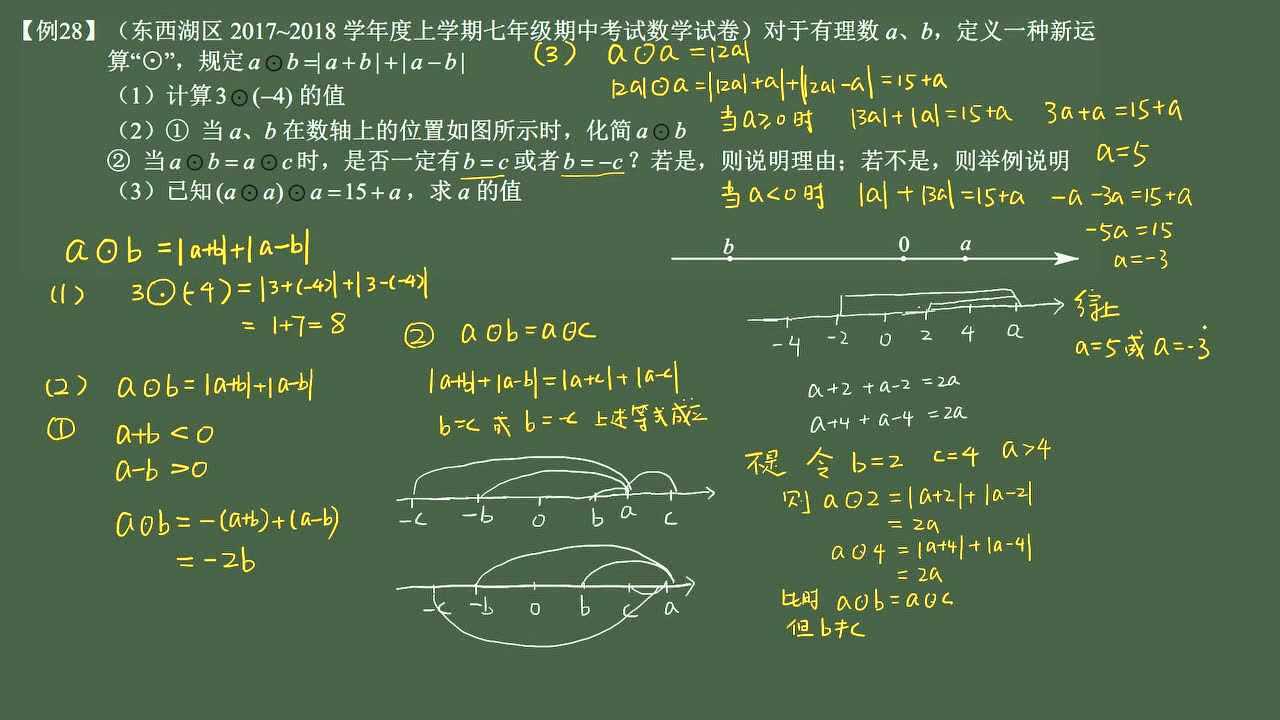 【例28】（东西湖区 2017~2018 学年度上学期七年级期中考试数学试卷）对于有理数 a、b，定义一种新运
算“⊙”，规定 a⊙b=|a+b|+|a−b|
（1）计算3⊙(−4) 的值
（2）① 当 a、b 在数轴上的位置如图所示时，化简 a⊙b
② 当 a⊙b=a⊙c 时，是否一定有 b=c 或者 b=−c？若是，则说明理由；若不是，则举例说明
（3）已知 (a⊙a)⊙a=15+a，求 a 的值
(3) a⊙a=|2a|
|2a|⊙a=||2a|+a|+||2a|-a|=15+a
当a≥0时 |3a|+|a|=15+a 3a+a=15+a
a=5
当a<0时 |a|+|3a|=15+a -a-3a=15+a
-5a=15
a=-3
综上
a=5或a=-3
b 0 a
-4 -2 0 2 4 a
a+2+a-2=2a
a+4+a-4=2a
a⊙b=|a+b|+|a-b|
(1) 3⊙(-4)=|3+(-4)|+|3-(-4)|
=1+7=8
(2) a⊙b=|a+b|+|a-b|
① a+b<0
a-b>0
a⊙b=-(a+b)+(a-b)
=-2b
② a⊙b=a⊙c
|a+b|+|a-b|=|a+c|+|a-c|
b=c 或 b=-c 上述等式成立
-c -b 0 b a c
-c -b 0 b c a
不是 令 b=2 c=4 a>4
则 a⊙2=|a+2|+|a-2|
=2a
a⊙4=|a+4|+|a-4|
=2a
此时 a⊙b=a⊙c
但b≠c